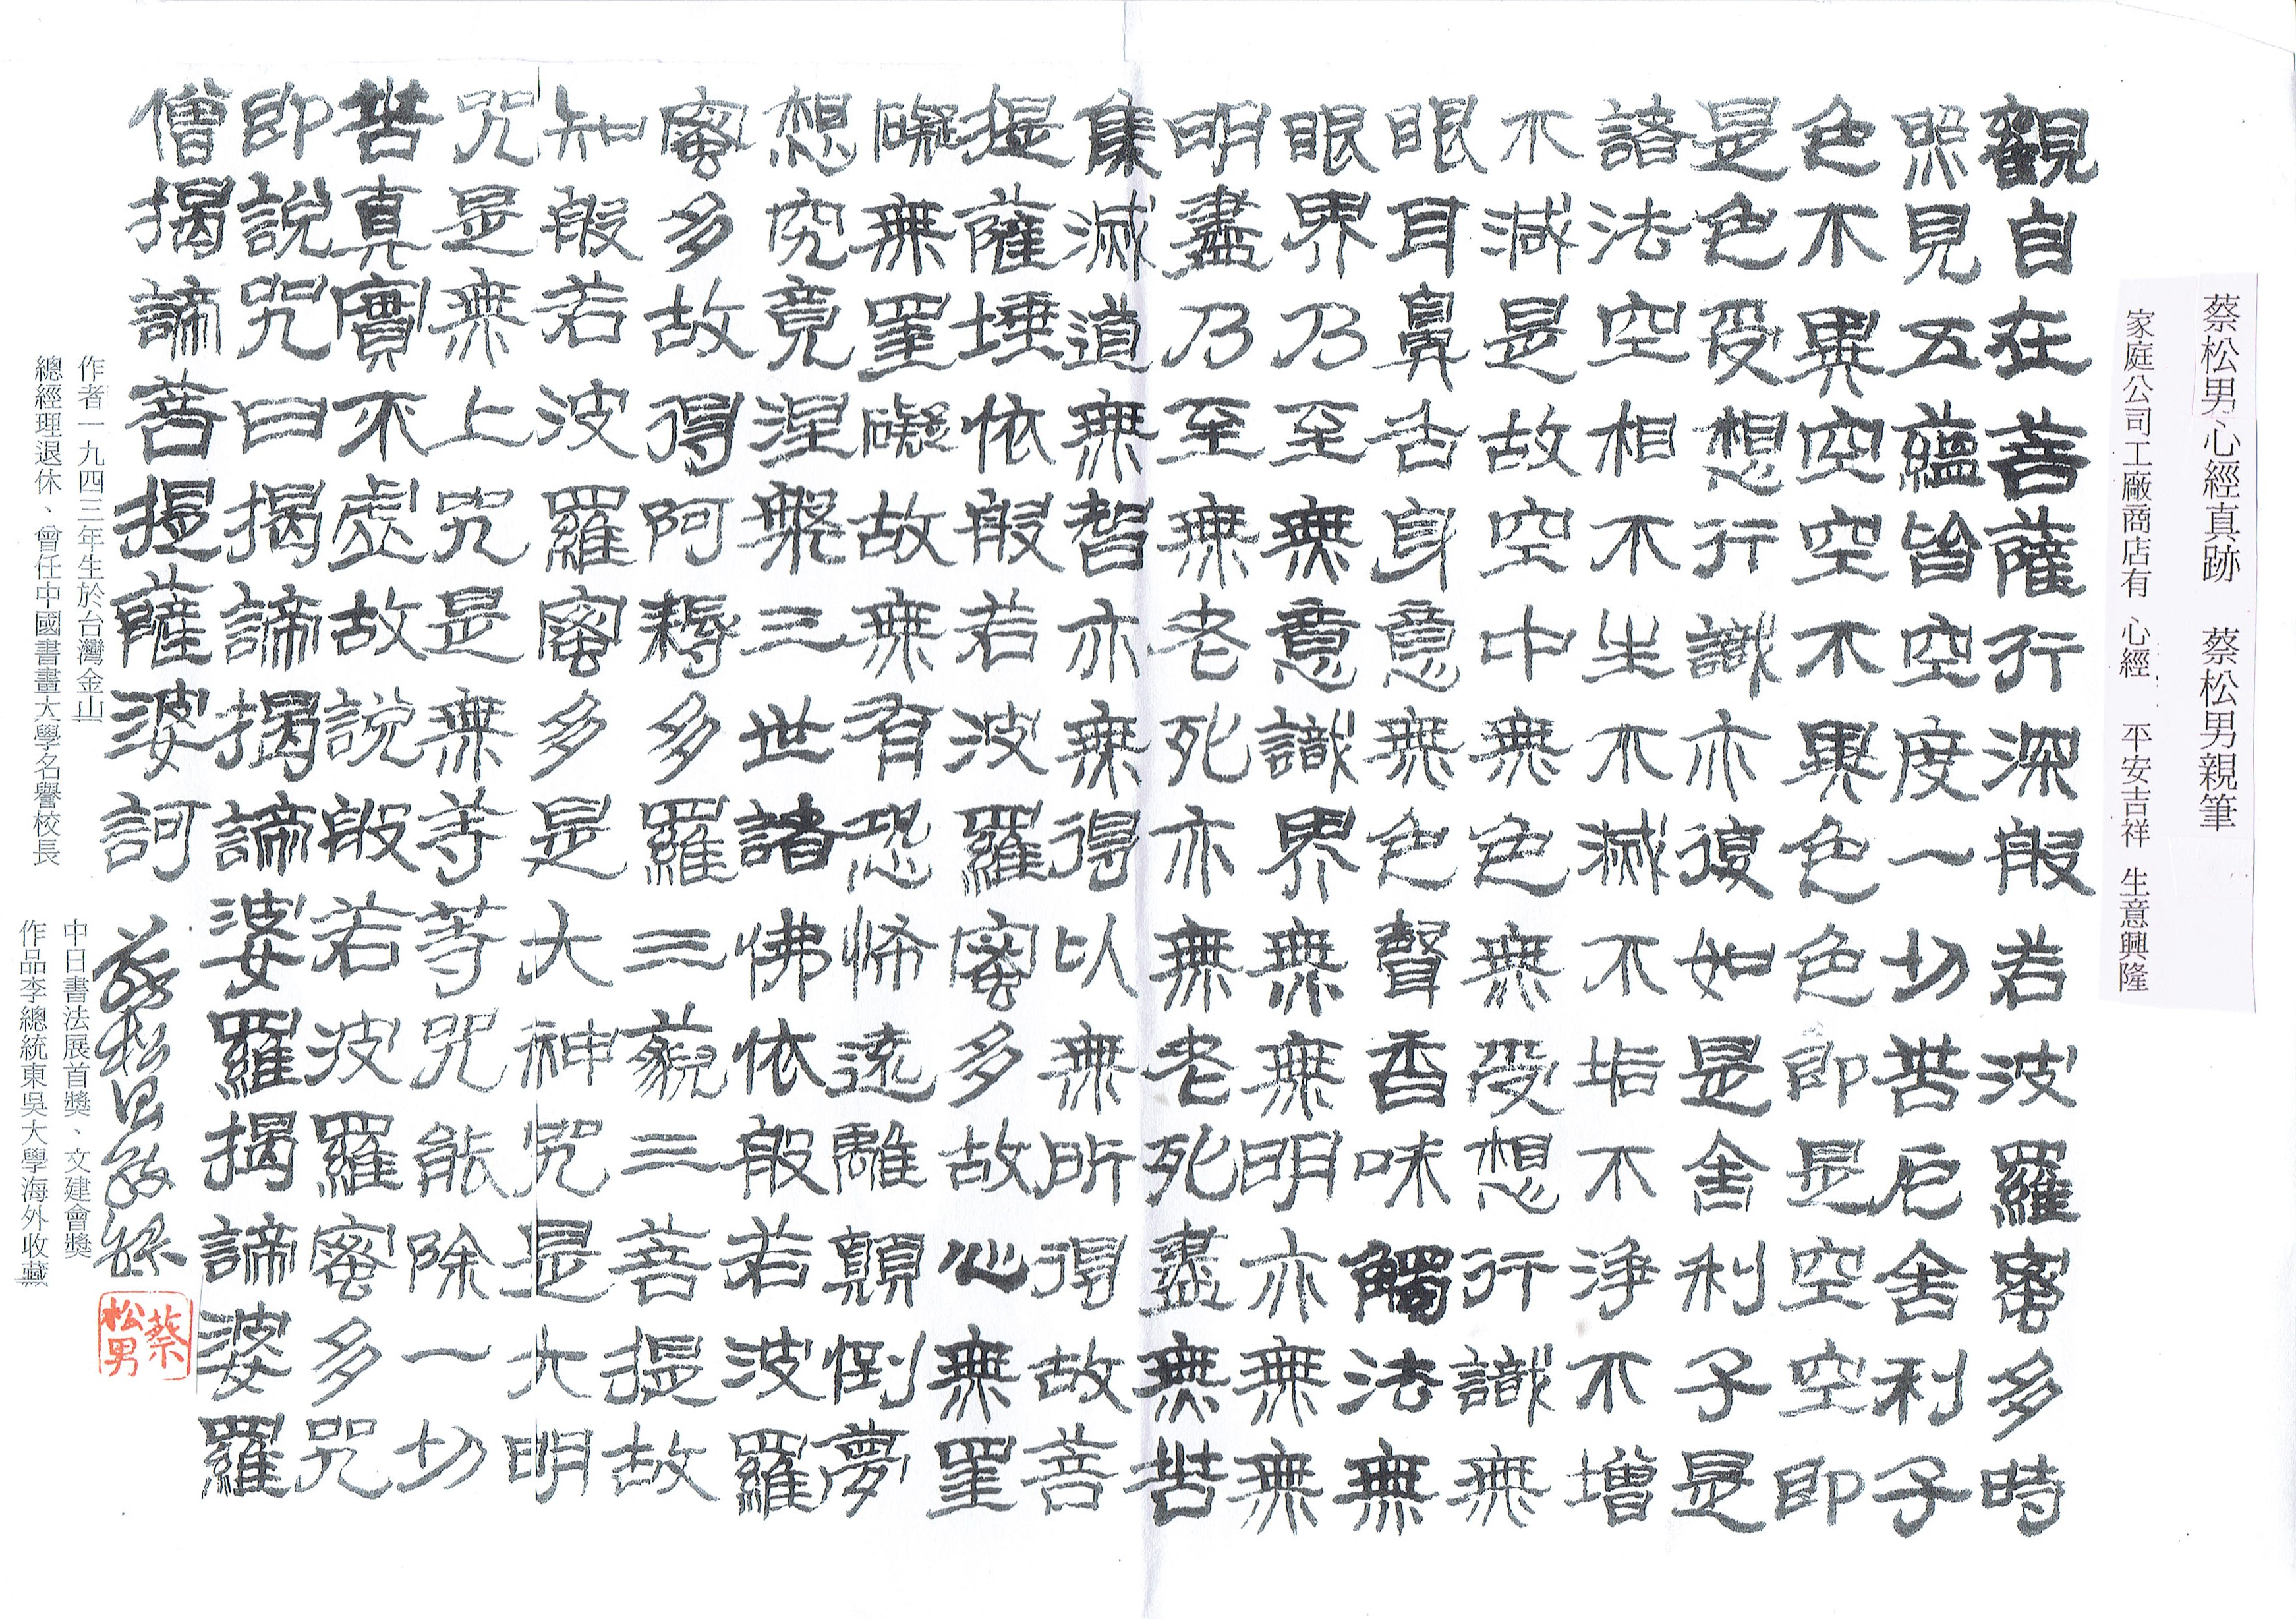 蔡松男心經真跡　蔡松男親筆
家庭公司工廠商店有　心經　平安吉祥　生意興隆
觀自在菩薩行深般若波羅蜜多時
照見五蘊皆空度一切苦厄舍利子
色不異空空不異色色即是空空即
是色受想行識亦復如是舍利子是
諸法空相不生不滅不垢不淨不增
不減是故空中無色無受想行識無
眼耳鼻舌身意無色聲香味觸法無
眼界乃至無意識界無無明亦無無
明盡乃至無老死亦無老死盡無苦
集滅道無智亦無得以無所得故菩
提薩埵依般若波羅蜜多故心無罣
礙無罣礙故無有恐怖遠離顛倒夢
想究竟涅槃三世諸佛依般若波羅
蜜多故得阿耨多羅三藐三菩提故
知般若波羅蜜多是大神咒是大明
咒是無上咒是無等等咒能除一切
苦真實不虛故說般若波羅蜜多咒
即說咒曰揭諦揭諦婆羅揭諦婆羅
僧揭諦菩提薩婆訶
蔡松男敬錄
蔡松男
作者一九四三年生於台灣金山
總經理退休、曾任中國書畫大學名譽校長
中日書法展首獎、文建會獎
作品李總統東吳大學海外收藏